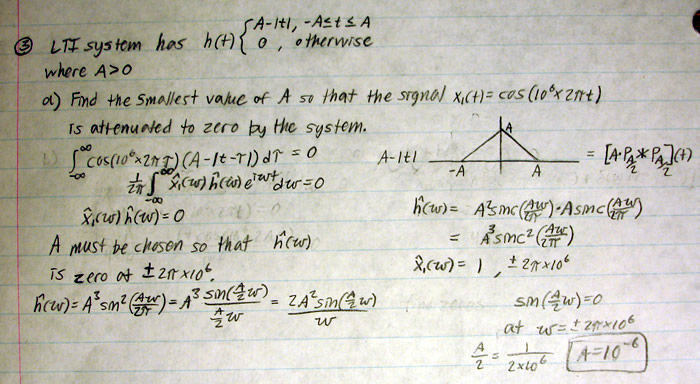 ③ LTI system has h(t) { A-|t|, -A≤t≤A
0, otherwise
where A>0
a) Find the smallest value of A so that the signal x₁(t) = cos(10⁶×2πt)
is attenuated to zero by the system.
∫_{-∞}^{∞} cos(10⁶×2πτ)(A-|t-τ|)dτ = 0
1/2π ∫_{-∞}^{∞} x̂₁(ω)ĥ(ω)e^{iωt}dω = 0
x̂₁(ω)ĥ(ω) = 0
A must be chosen so that ĥ(ω)
is zero at ±2π×10⁶.
ĥ(ω) = A³sin²(Aω/2π) = A³ sin(A/2 ω) / (A/2 ω) = 2A² sin(A/2 ω) / ω
A-|t|
A
-A
A
= [A·P_{A/2} * P_{A/2}](t)
ĥ(ω) = A²sinc(Aω/2π)·Asinc(Aω/2π)
= A³sinc²(Aω/2π)
x̂₁(ω) = 1, ±2π×10⁶
sin(A/2 ω) = 0
at ω = ±2π×10⁶
A/2 = 1/(2×10⁶)
A = 10⁻⁶